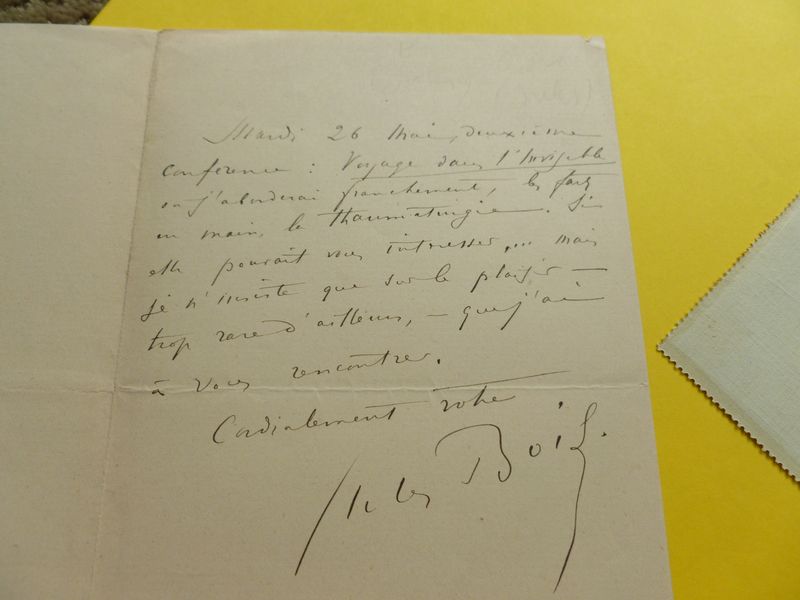 Mardi 26 Mai, deuxième
conférence : Voyage dans l'Invisible
où j'aborderai franchement, les faits
en main, la thaumaturgie. Si
elle pouvait vous intéresser, ... mais
je n'insiste que sur le plaisir —
trop rare d'ailleurs, — que j'ai
à vous rencontrer.
Cordialement votre
Jules Bois.